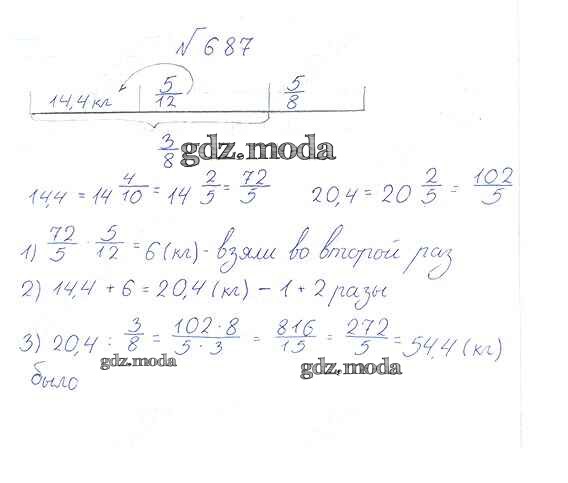 № 687
14,4 кг 5/12 5/8
3/8
gdz.moda
14,4 = 14 4/10 = 14 2/5 = 72/5 20,4 = 20 2/5 = 102/5
1) 72/5 · 5/12 = 6 (кг) - взяли во второй раз
2) 14,4 + 6 = 20,4 (кг) – 1 + 2 разы
3) 20,4 : 3/8 = 102·8/5·3 = 816/15 = 272/5 = 54,4 (кг)
gdz.moda
gdz.moda
было